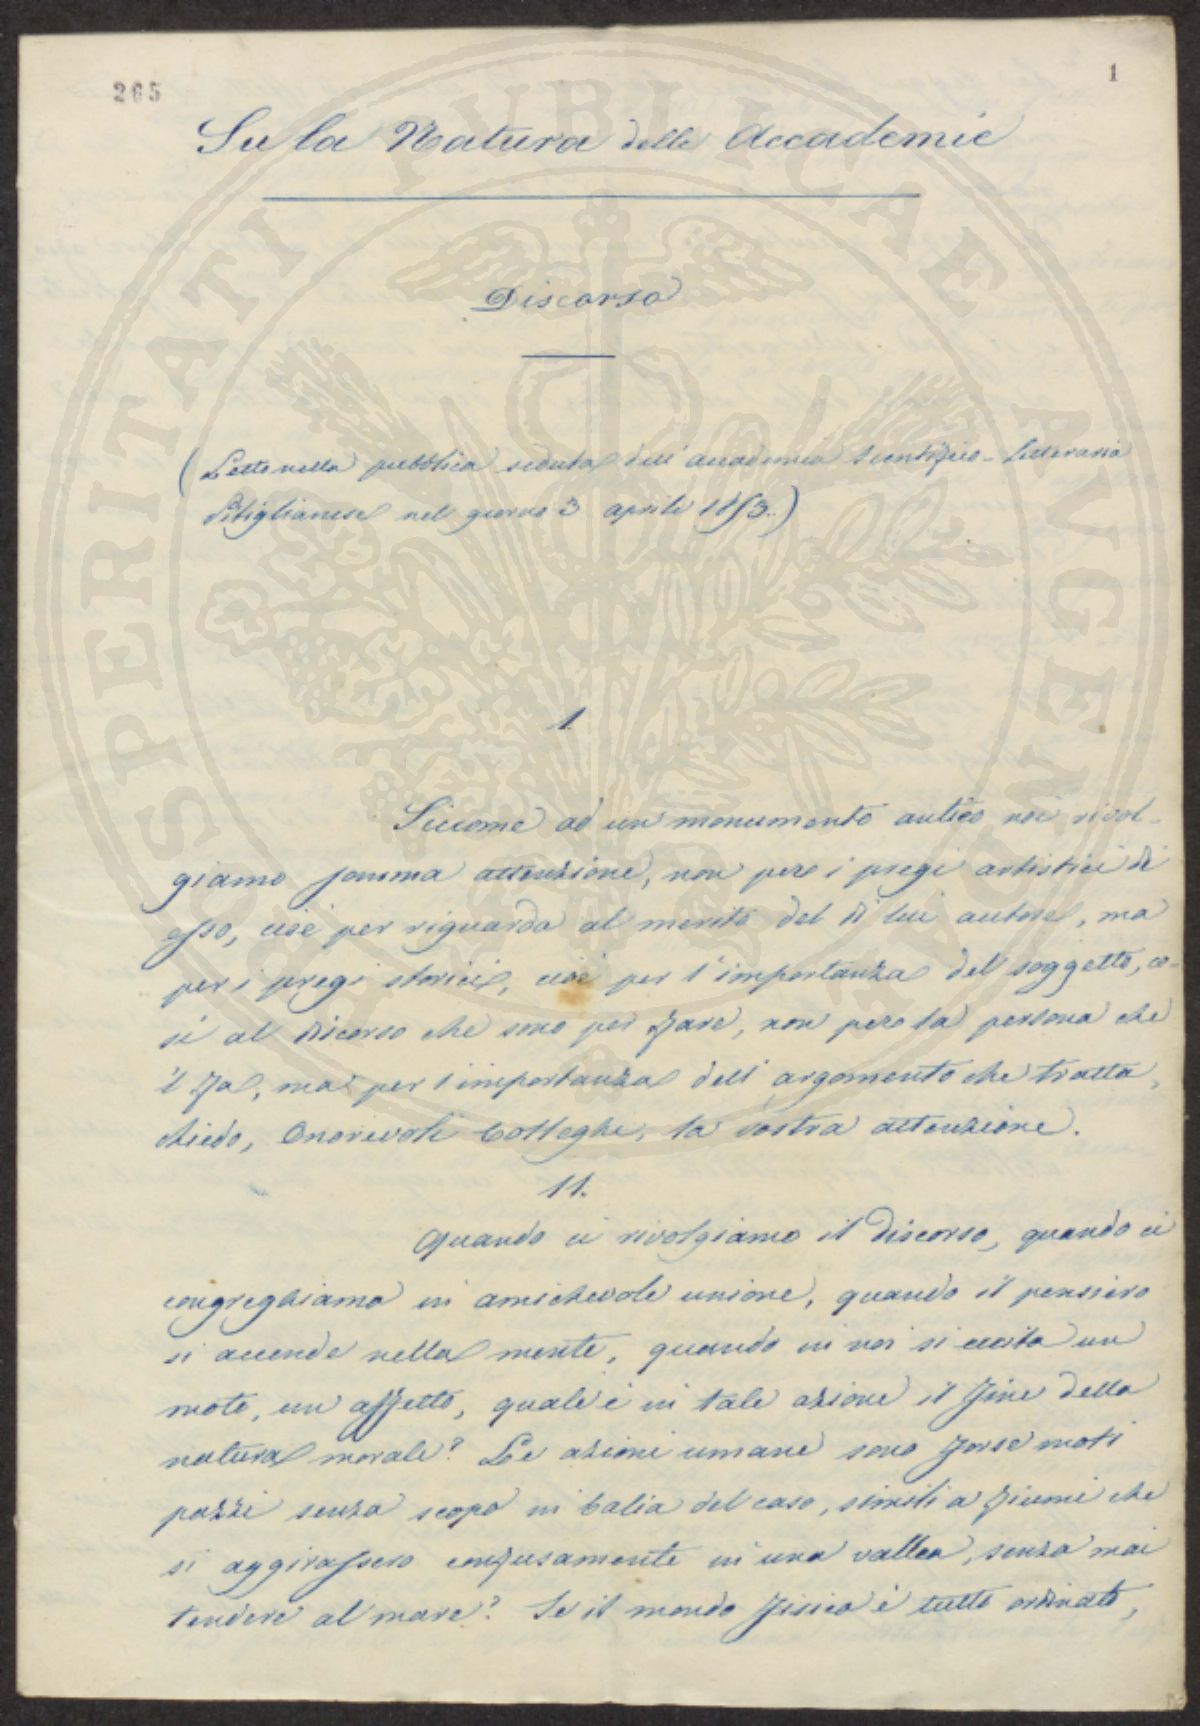 265
1
Su la Natura delle Accademie
Discorso
(Letto nella pubblica seduta dell'accademia Scientifico-Letteraria
Pitiglianese nel giorno 3 aprile 1853.)
1.
Siccome ad un monumento antico noi rivol-
giamo somma attenzione, non pere i pregi artistici di
esso, cioè per riguardo al merito del di lui autore, ma
per i pregi storici, cioè per l'importanza del soggetto, co-
sì al discorso che sono per fare, non pere la persona che
il fa, ma per l'importanza dell'argomento che tratta,
chiedo, Onorevoli Colleghi, la vostra attenzione.
11.
Quando ci rivolgiamo il discorso, quando ci
congreghiamo in amichevole unione, quando il pensiero
si accende nella mente, quando in noi si eccita un
moto, un affetto, quale è in tale azione il fine della
natura morale? Le azioni umane sono forse moti
pazzi senza scopo in balia del caso, simili a fiumi che
si aggirassero confusamente in una vallea, senza mai
tendere al mare? Se il mondo fisico è tutto ordinato,
PROSPERITATI PUBLICAE AVGENDAE